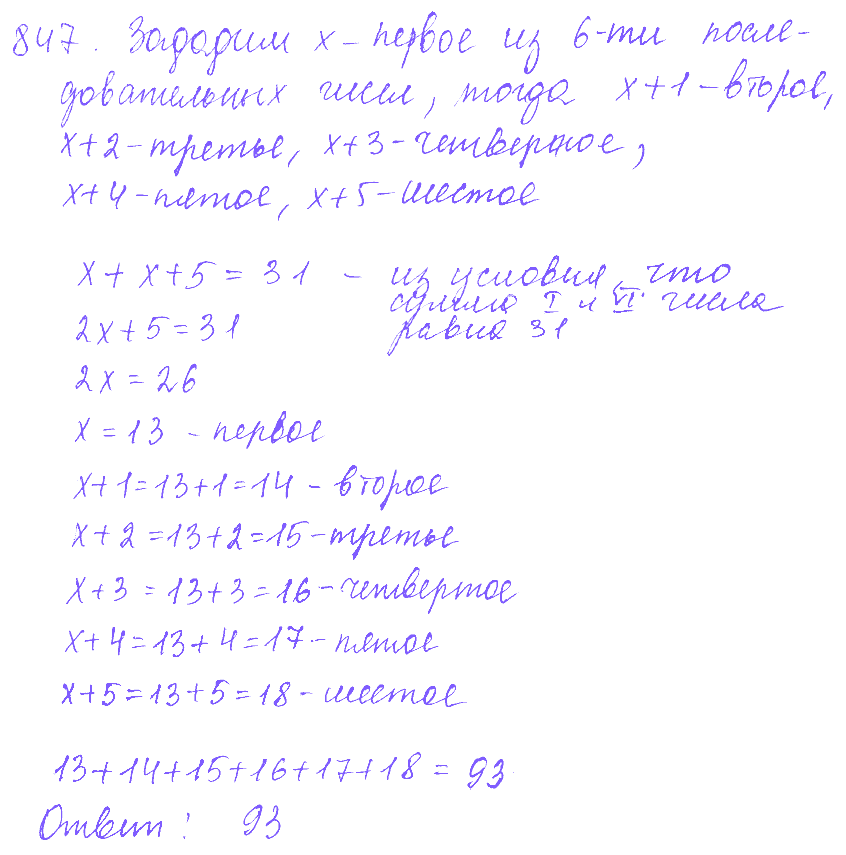 847. Зададим x – первое из 6-ти после-
довательных чисел, тогда x+1 – второе,
x+2 – третье, x+3 – четвертое,
x+4 – пятое, x+5 – шестое
x + x+5 = 31 – из условия, что
сумма I и VI числа
2x+5=31 равна 31
2x = 26
x = 13 – первое
x+1=13+1=14 – второе
x+2=13+2=15 – третье
x+3=13+3=16 – четвертое
x+4=13+4=17 – пятое
x+5=13+5=18 – шестое
13+14+15+16+17+18 = 93
Ответ: 93